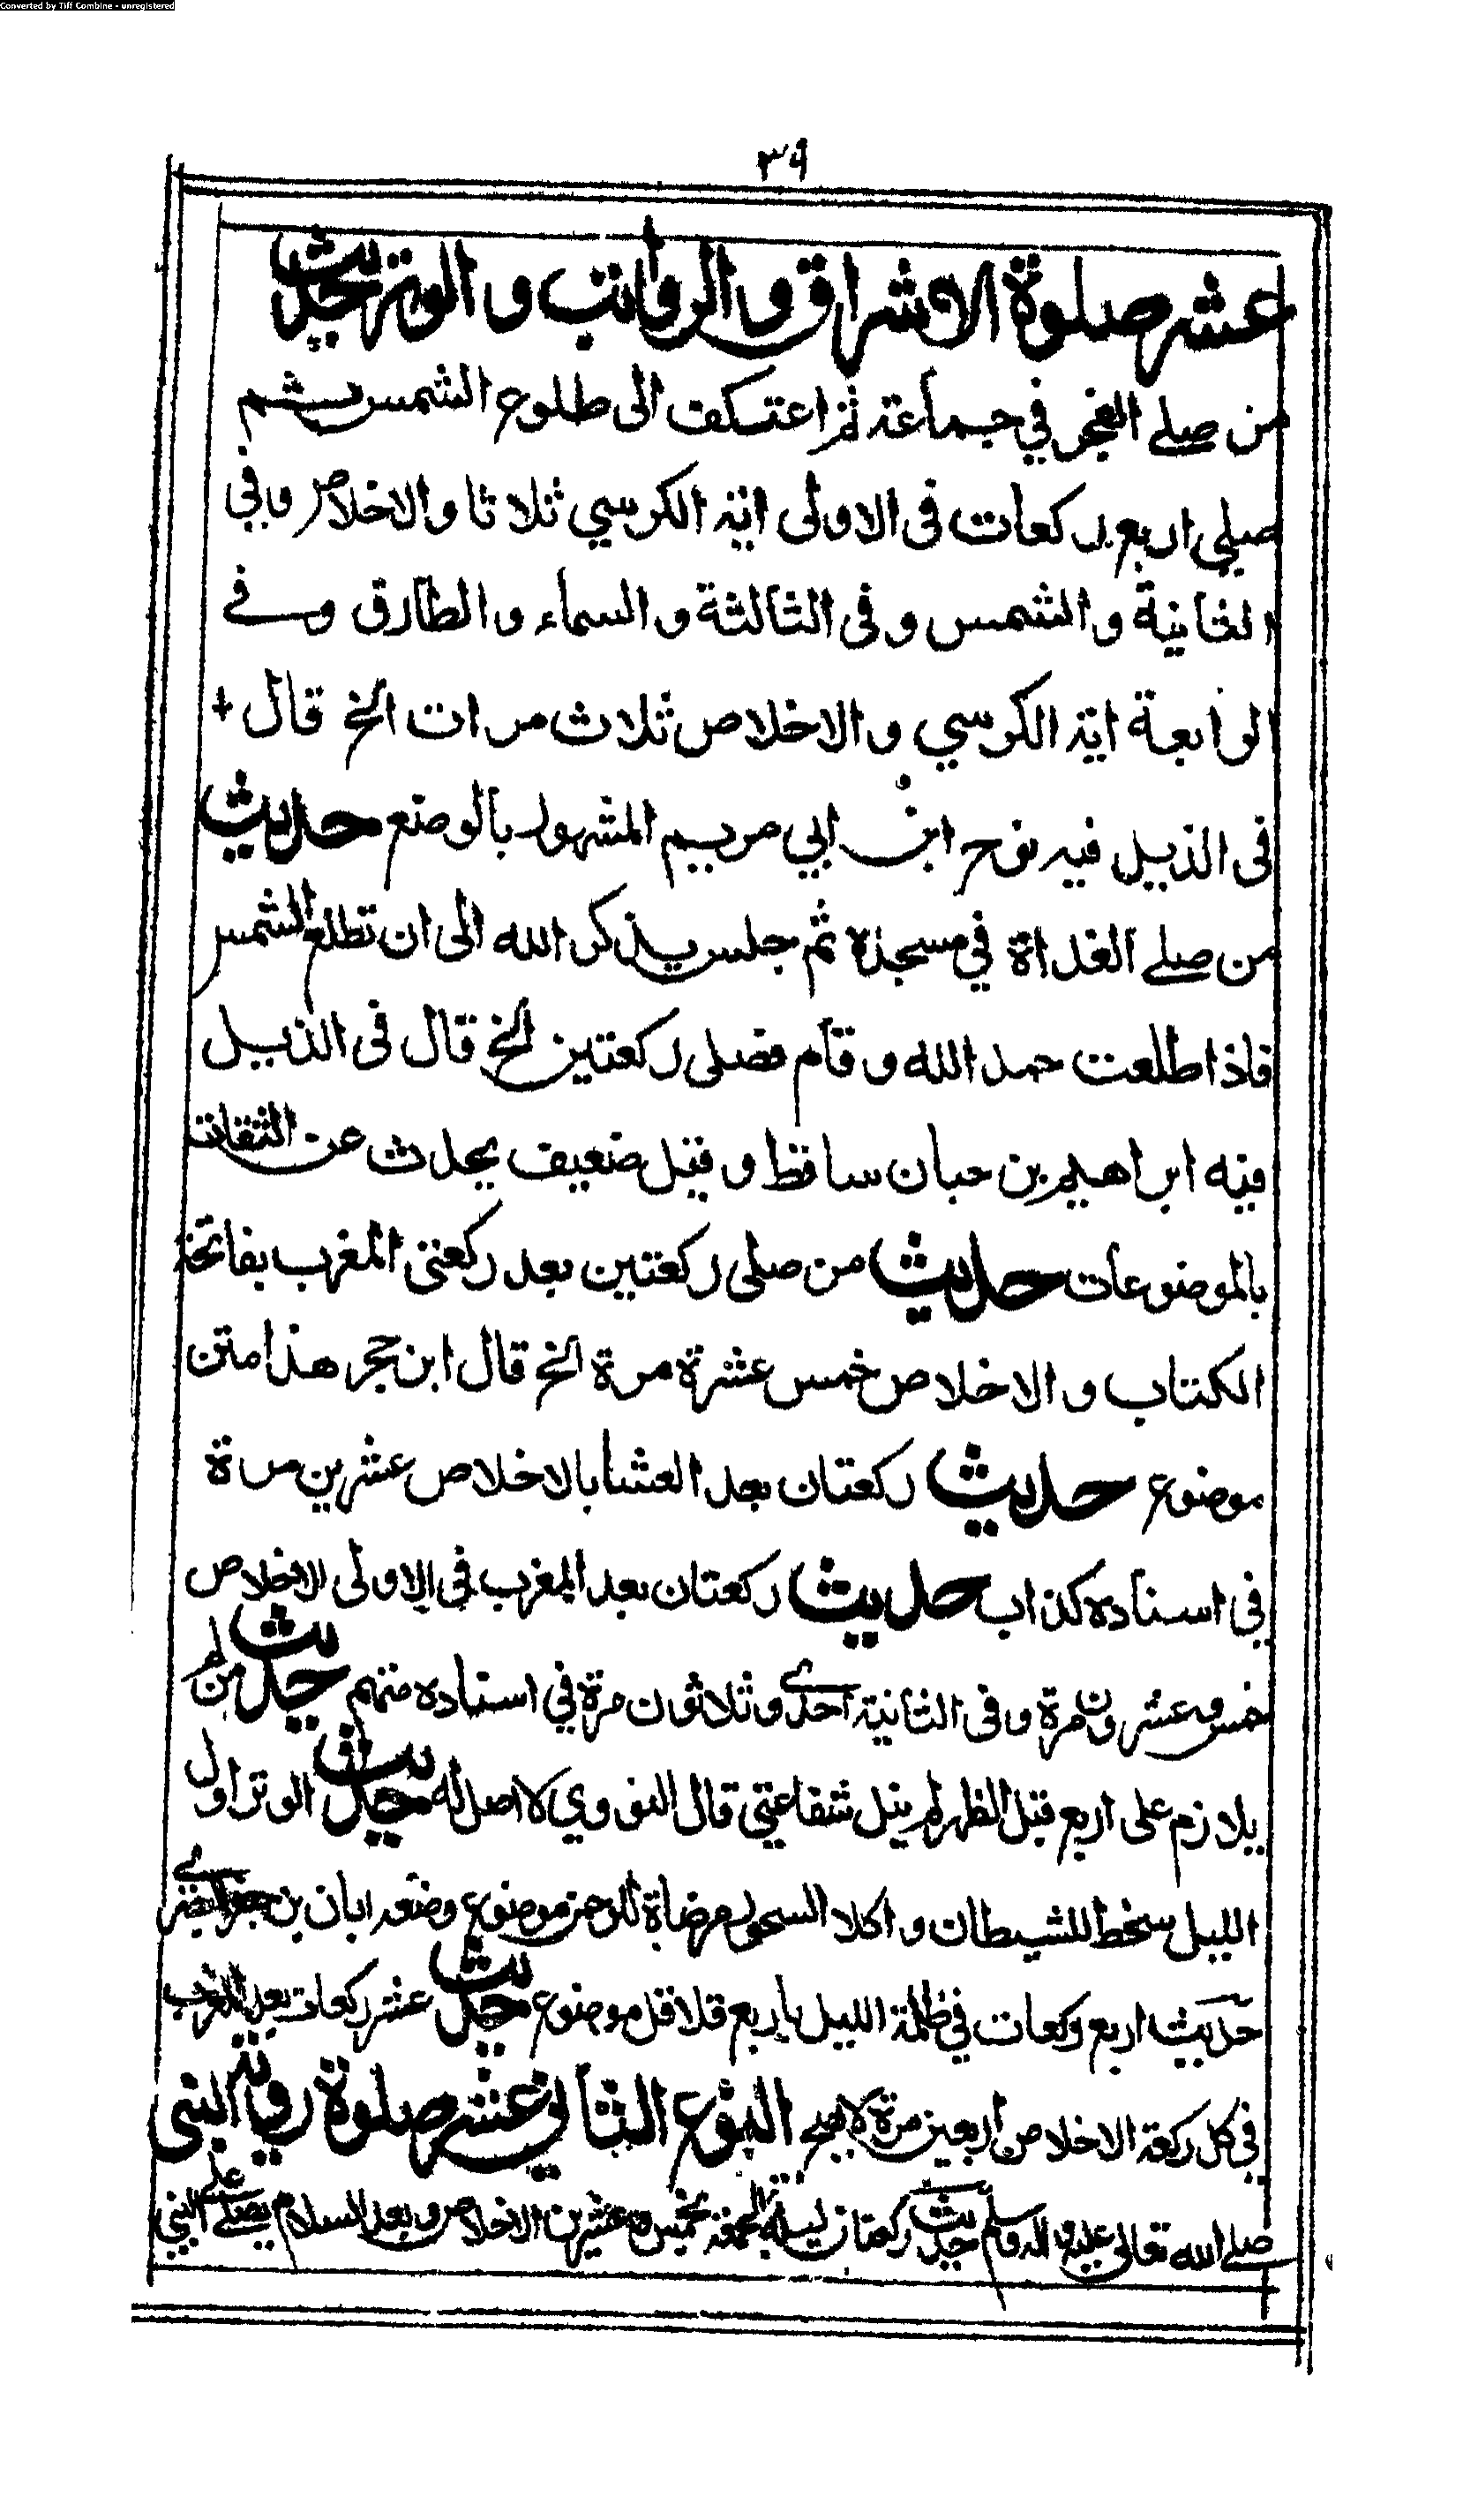 Converted by Tiff Combine - unregistered
٣٩
عشر صلوة الاشراق والرواتب والوتر حديث
من صلے الفجر في جماعة ثم اعتكف الى طلوع الشمس ثم
صلي اربع ركعات فى الاولى اية الكرسي ثلاثا والاخلاص وفي
الثانية والشمس وفى الثالثة والسماء والطارق وفے
الرابعة اية الكرسي والاخلاص ثلاث مرات الخ قال +
فى الذيل فيه نوح ابن ابي مريم المشهور بالوضع حديث
من صلے الغداة في مسجده ثم جلس يذكر الله الى ان تطلع الشمس
فاذا طلعت حمد الله وقام فصلى ركعتين الخ قال فى الذيل
فيه ابراهيم بن حبان ساقط وقيل ضعيف يحدث عن الثقات
بالموضوعات حديث من صلى ركعتين بعد ركعتى المغرب بفاتحة
الكتاب والاخلاص خمس عشرة مرة الخ قال ابن حجر هذا متن
موضوع حديث ركعتان بعد العشا بالاخلاص عشرين مرة
في اسناده كذاب حديث ركعتان بعد المغرب في الاولى الاخلاص
خمس وعشرون مرة وفى الثانية احدى وثلاثون مرة في اسناده متهم حديث من لم
يلازم على اربع قبل الظهر لم ينل شفاعتي قال النووي لا اصل له حديث الوتر اول
الليل سخط للشيطان واكلا السحور مرضاة للرحمن موضوع وضعه ابان بن جعفر البصرى
حديث اربع ركعات في ظلمة الليل باربع قلاقل موضوع حديث عشر ركعات بعد المغرب
في كل ركعة الاخلاص اربعين مرة لا يصح النوع الثاني عشر صلوة روية النبى
صلے الله تعالى عليه واله وسلم حديث ركعتان ليلة الجمعة بخمس وعشرين الاخلاص وبعد السلام يصلے على النبي